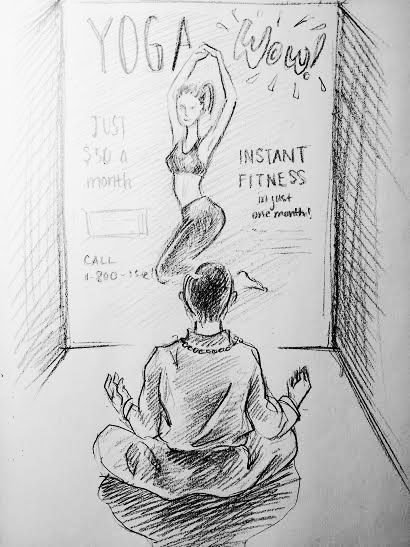 YOGA
Wow!
JUST
$30 a
month
INSTANT
FITNESS
in just
one month!
CALL
1-800-